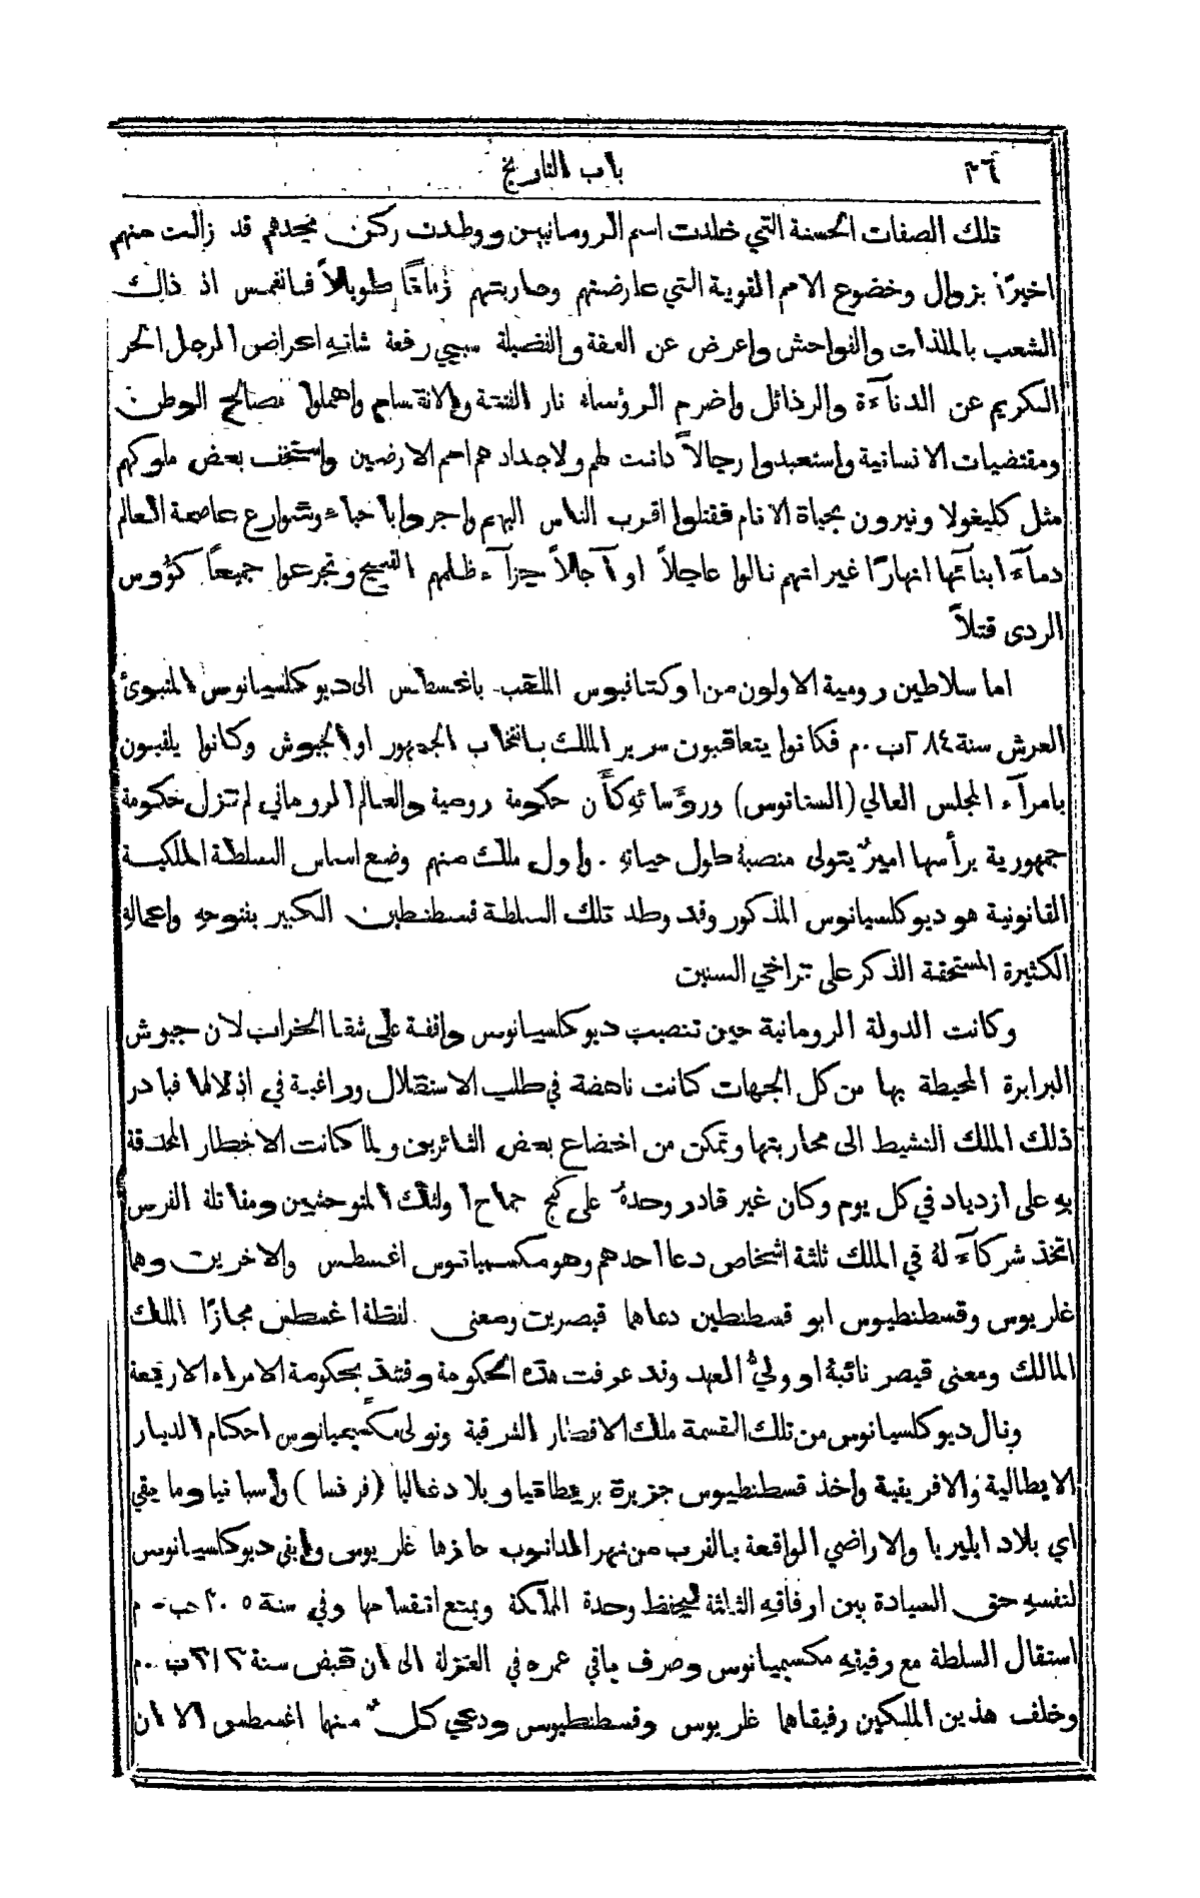 ٢٦
باب التاريخ
تلك الصفات الحسنة التي خلدت اسم الرومانيين ووطدت ركن مجدهم قد زالت منهم
اخيرًا بزوال وخضوع الامم القوية التي عارضتهم وحاربتهم زمانًا طويلاً فانغمس اذ ذالك
الشعب بالملذات والفواحش واعرض عن العفة والفضيلة سببي رفعة شانهِ اعراض الرجل الحر
الكريم عن الدنآءة والرذائل واضرم الروساء نار الفتنة والانقسام واهملوا مصالح الوطن
ومقتضيات الانسانية واستعبدوا رجالاً دانت لهم ولاجداد هم امم الارضين واستخف بعض ملوكهم
مثل كليغولا ونيرون بحياة الانام فقتلوا اقرب الناس اليهم واجروا باحياء وشوارع عاصمة العالم
دمآء ابنآئها انهارًا غير انهم نالوا عاجلاً او آجلاً جزآء ظلمهم القبيح وتجرعوا جميعًا كؤوس
الردى قتلاً
اما سلاطين رومية الاولون من اوكتافيوس الملقب باغسطس الى ديوكلسيانوس المتبوئ
العرش سنة ٢٨٤ ب ٠ م فكانوا يتعاقبون سرير الملك بانتخاب الجمهور او الجيوش وكانوا يلقبون
بامرآء المجلس العالي (السناتوس) ورؤسائهِ كأن حكومة رومية والعالم الروماني لم تزل حكومة
جمهورية برأسها اميرٌ يتولى منصبهُ طول حياتهِ ٠ واول ملك منهم وضع اساس السلطة الملكية
القانونية هو ديوكلسيانوس المذكور وقد وطد تلك السلطة قسطنطين الكبير بفتوحهِ واعمالهِ
الكثيرة المستحقة الذكر على تراخي السنين
وكانت الدولة الرومانية حين تنصيب ديوكلسيانوس واقفة على شفا الخراب لان جيوش
البرابرة المحيطة بها من كل الجهات كانت ناهضة في طلب الاستقلال وراغبة في اذلالها فبادر
ذلك الملك النشيط الى محاربتها وتمكن من اخضاع بعض الثائرين ولما كانت الاخطار المحدقة
بهِ على ازدياد في كل يوم وكان غير قادر وحدهُ على كبح جماح اولئك المتوحشين ومقاتلة الفرس
اتخذ شركآء لهُ في الملك ثلثة اشخاص دعا احدهم وهو مكسيميانوس اغسطس والاخرين وهما
غلريوس وقسطنطيوس ابو قسطنطين دعاهما قيصرين ومعنى لفظة اغسطس مجازًا الملك
المالك ومعنى قيصر نائبهُ او وليُّ العهد وقد عرفت هذه الحكومة وقتئذ بحكومة الامراء الاربعة
ونال ديوكلسيانوس من تلك القسمة ملك الاقطار الشرقية وتولى مكسيميانوس احكام الديار
الايطالية والافريقية واخذ قسطنطيوس جزيرة بريطانيا وبلاد غاليا (فرنسا) واسبانيا وما بقي
اي بلاد ايليريا والاراضي الواقعة بالقرب من نهر الدانوب حازها غلريوس وابقى ديوكلسيانوس
لنفسهِ حق السيادة بين ارفاقهِ الثلثة ليحفظ وحدة المملكة ويمنع انقسامها وفي سنة ٣٠٥ ب ٠ م
استقال السلطة مع رفيقهِ مكسيميانوس وصرف باقي عمره في العزلة الى ان قبض سنة ٣١٣ ب ٠ م
وخلف هذين الملكين رفيقاهما غلريوس وقسطنطيوس ودعي كلٌ منهما اغسطس الا ان